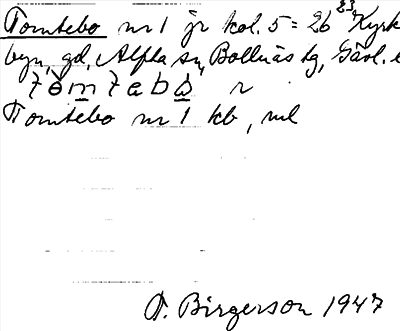 Tomtebo nr 1 jr kol. 5 = 26 23 Kyrk
byn, gd, Alfta sn, Bollnäs tg, Gävl. l
tòmtebò r
Tomtebo nr 1 kb, ml
T. Birgerson 1947